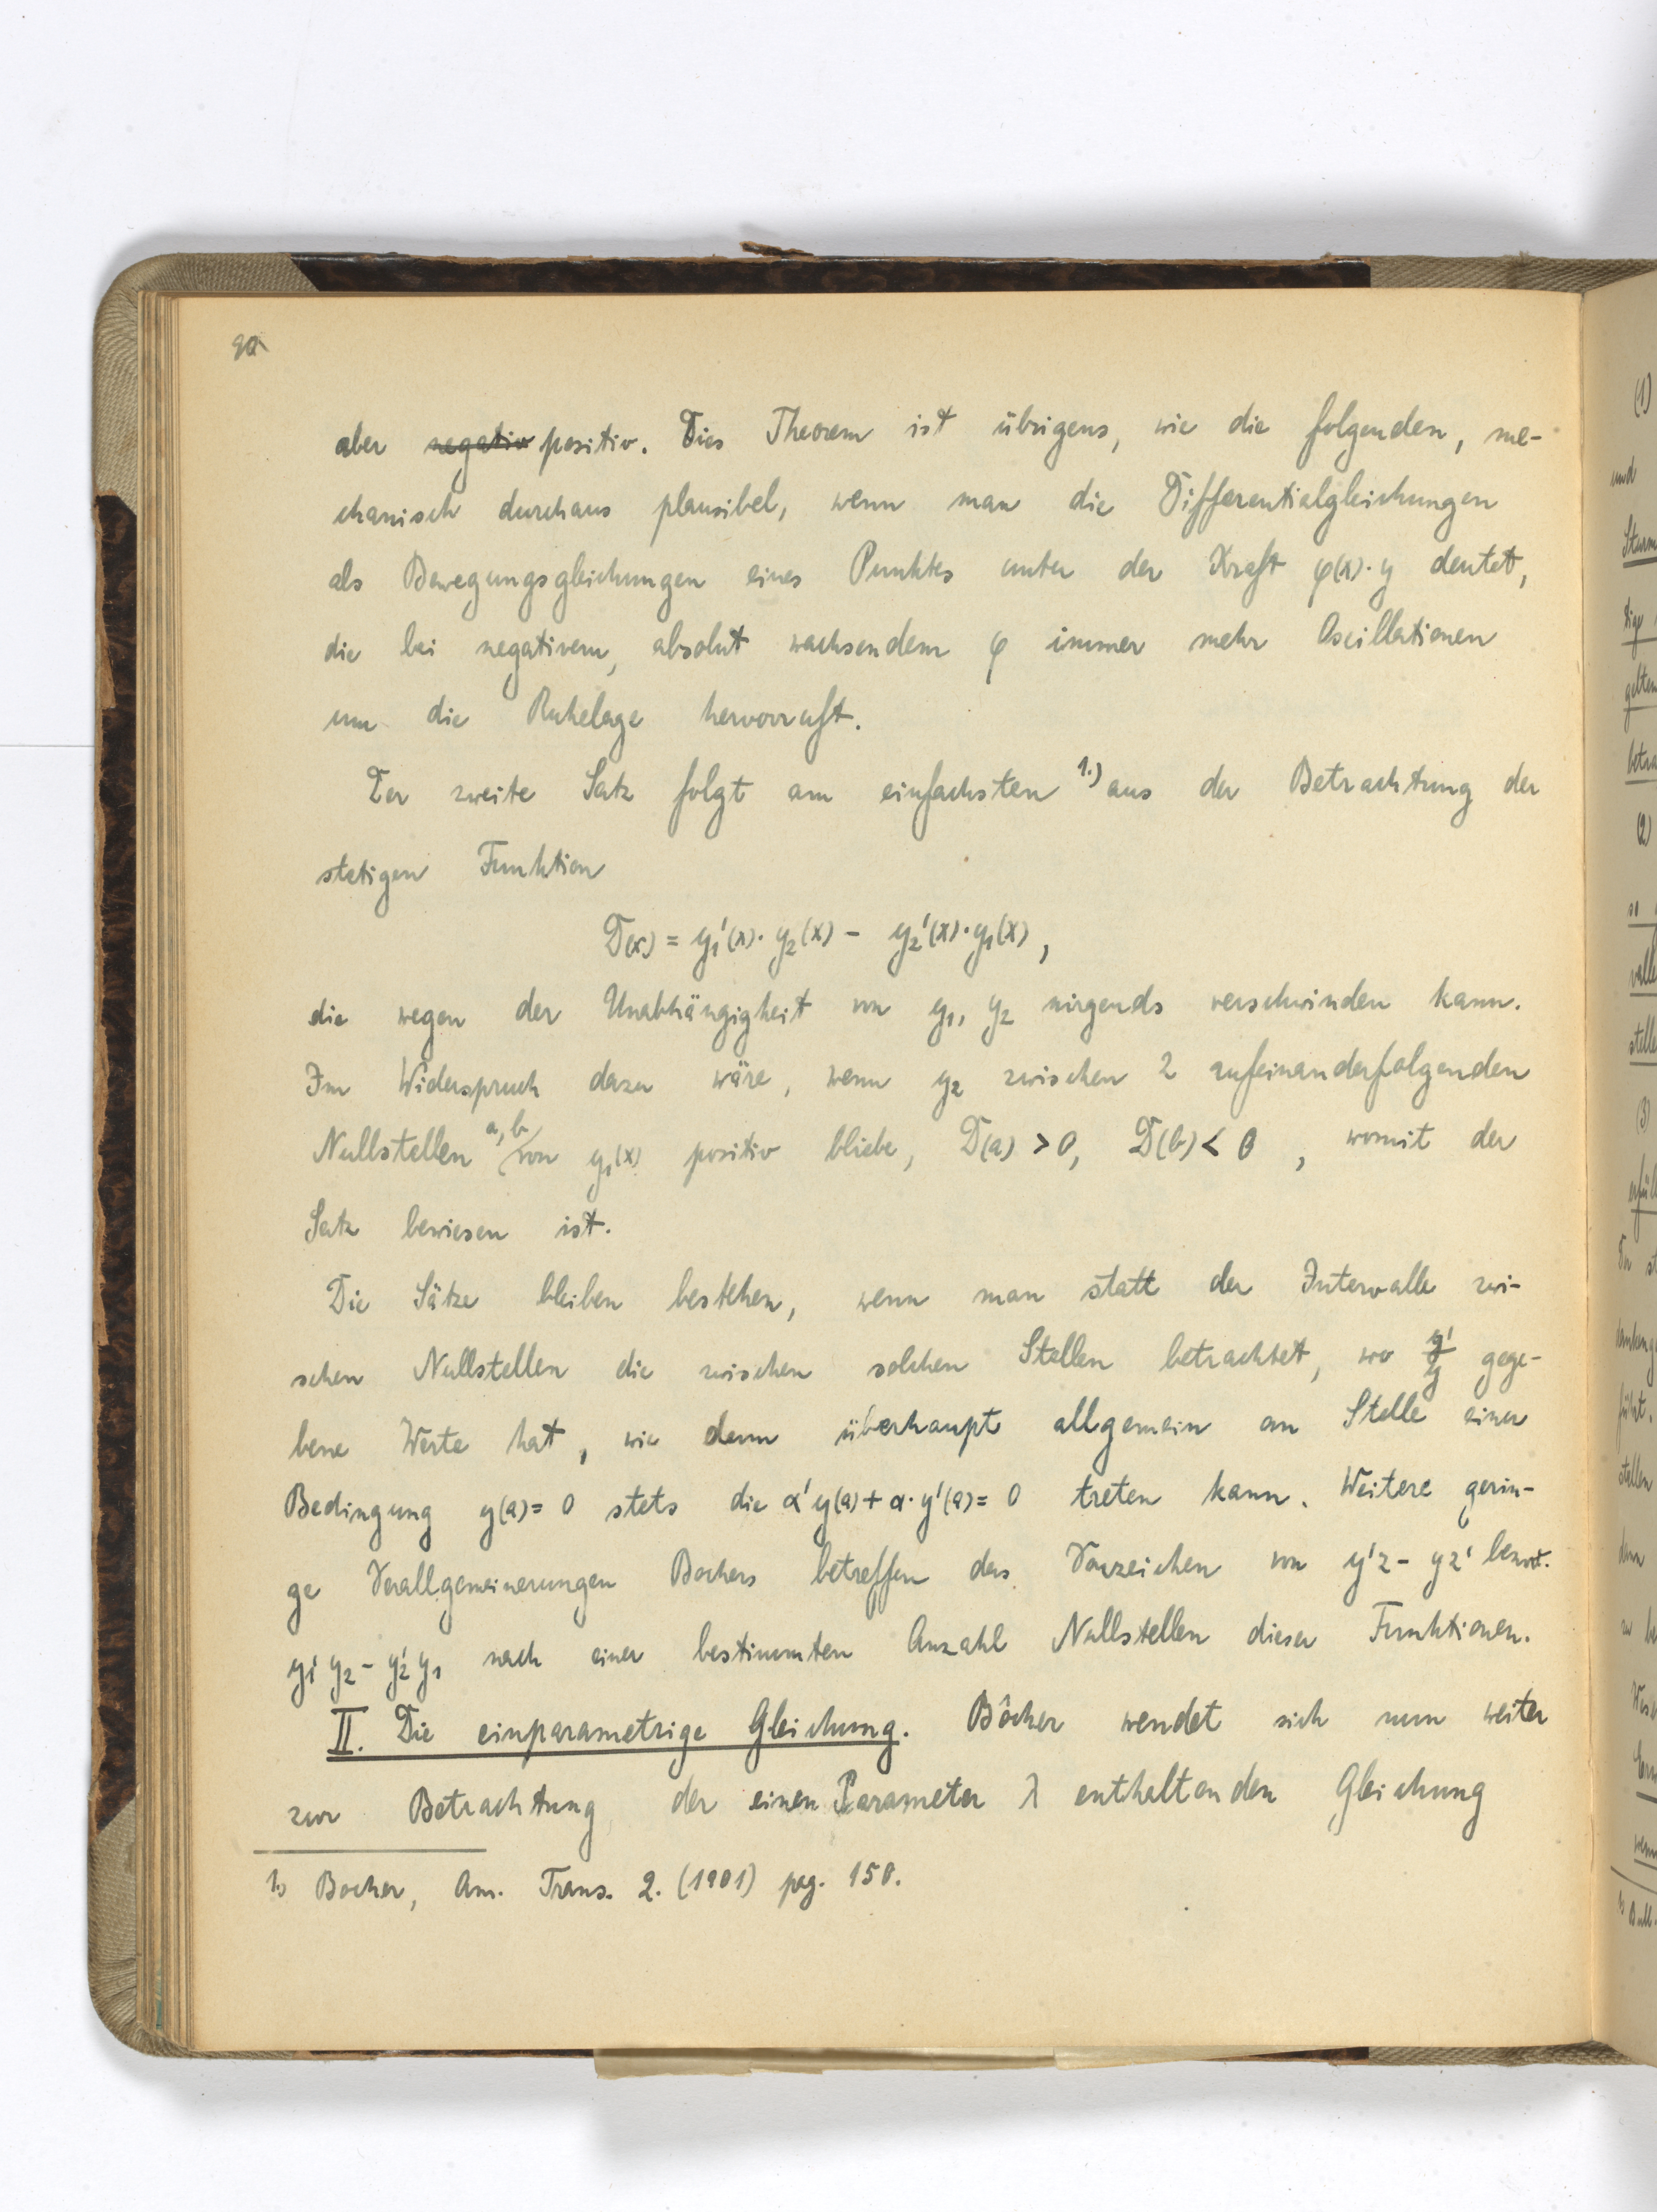 90
aber negativ positiv. Dies Theorem ist übrigens, wie die folgenden, me-
chanisch durchaus plausibel, wenn man die Differentialgleichungen
als Bewegungsgleichungen eines Punktes unter der Kraft φ(x)·y deutet,
die bei negativem, absolut wachsendem φ immer mehr Oscillationen
um die Ruhelage hervorruft.
Der zweite Satz folgt am einfachsten 1.) aus der Betrachtung der
stetigen Funktion
D(x) = y₁'(x)·y₂(x) - y₂'(x)·y₁(x),
die wegen der Unabhängigkeit von y₁, y₂ nirgends verschwinden kann.
Im Widerspruch dazu wäre, wenn y₂ zwischen 2 aufeinanderfolgenden
Nullstellen a, b von y₁(x) positiv bliebe, D(a) > 0, D(b) < 0, womit der
Satz bewiesen ist.
Die Sätze bleiben bestehen, wenn man statt der Intervalle zwi-
schen Nullstellen die zwischen solchen Stellen betrachtet, wo y'/y gege-
bene Werte hat, wie denn überhaupt allgemein an Stelle einer
Bedingung y(a) = 0 stets die α'y(a) + α·y'(a) = 0 treten kann. Weitere gerin-
ge Verallgemeinerungen Bochers betreffen das Vorzeichen von y'z - yz' bezw.
y₁'y₂ - y₂'y₁ nach einer bestimmten Anzahl Nullstellen dieser Funktionen.
II. Die einparametrige Gleichung. Bôcher wendet sich nun weiter
zur Betrachtung der einen Parameter λ enthaltenden Gleichung
1) Bocher, Am. Trans. 2. (1901) pag. 150.
(1)
und
(2)
(3)